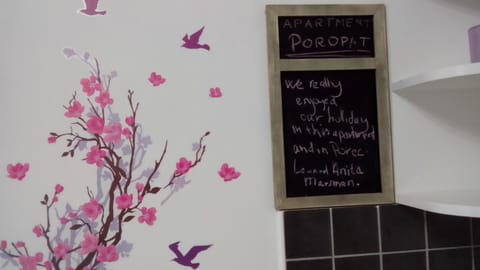 APARTMENT
POROPAT
We really
enjoyed
our holiday
in this apartment
and in Poreč.
Leo and Anita
Marsman.